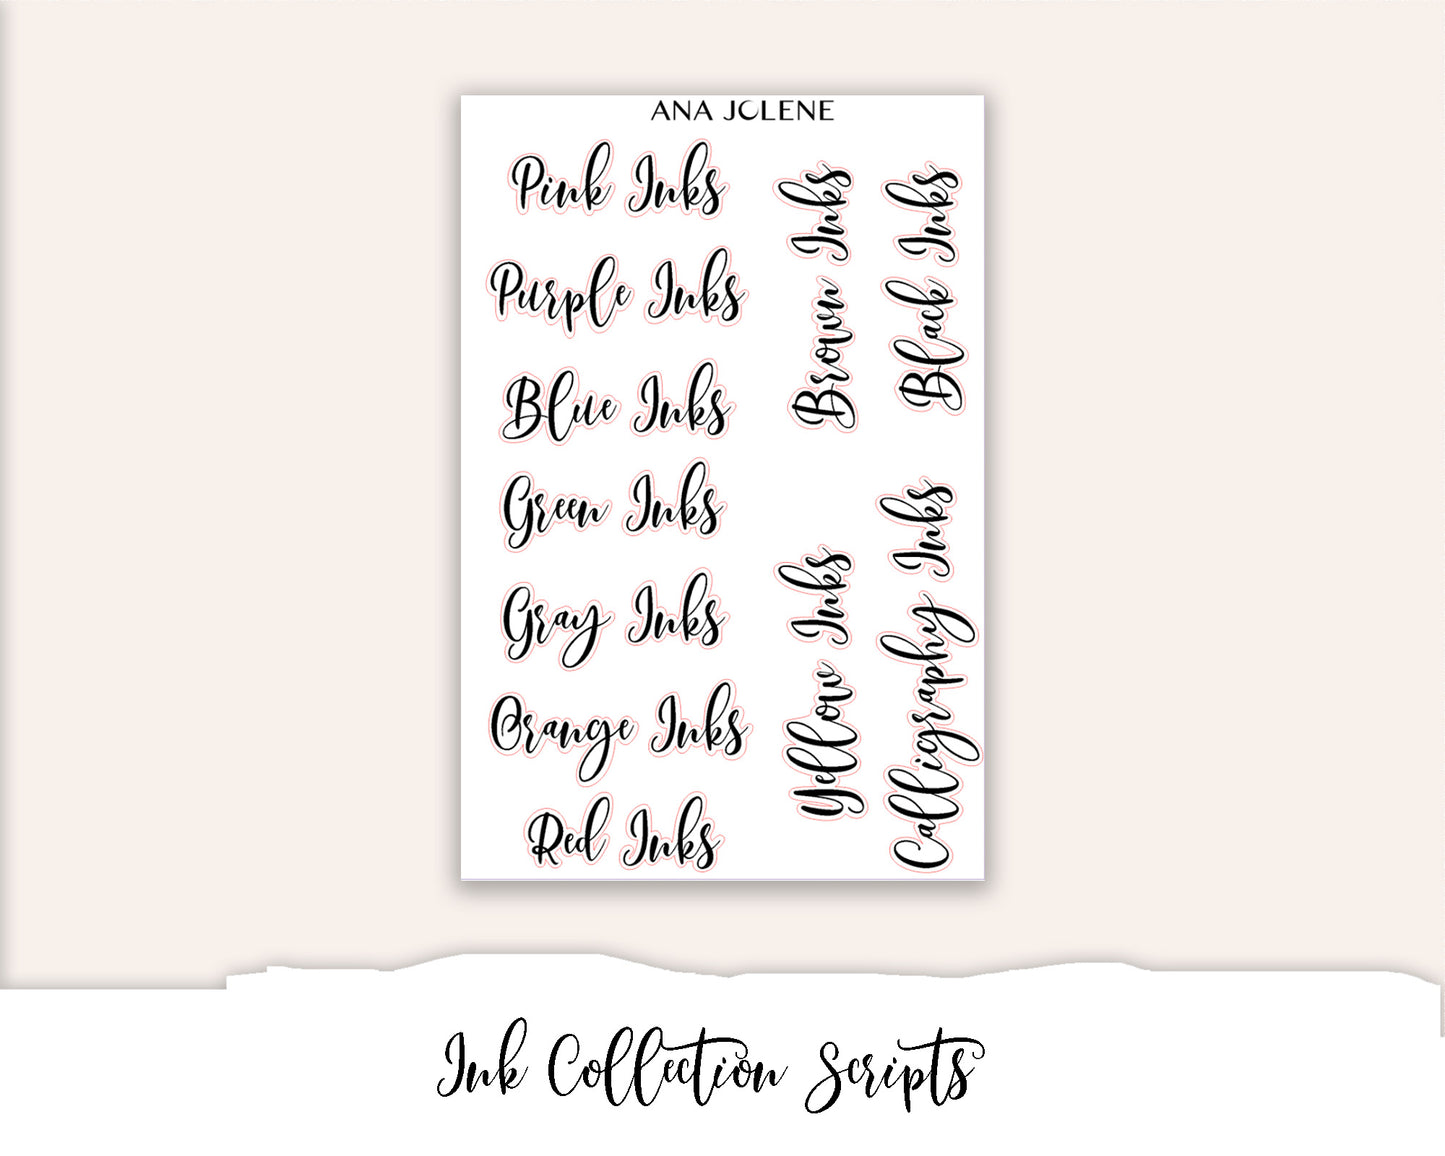 ANA JOLENE
Pink Inks
Purple Inks
Blue Inks
Green Inks
Gray Inks
Orange Inks
Red Inks
Brown Inks
Black Inks
Yellow Inks
Calligraphy Inks
Ink Collection Scripts